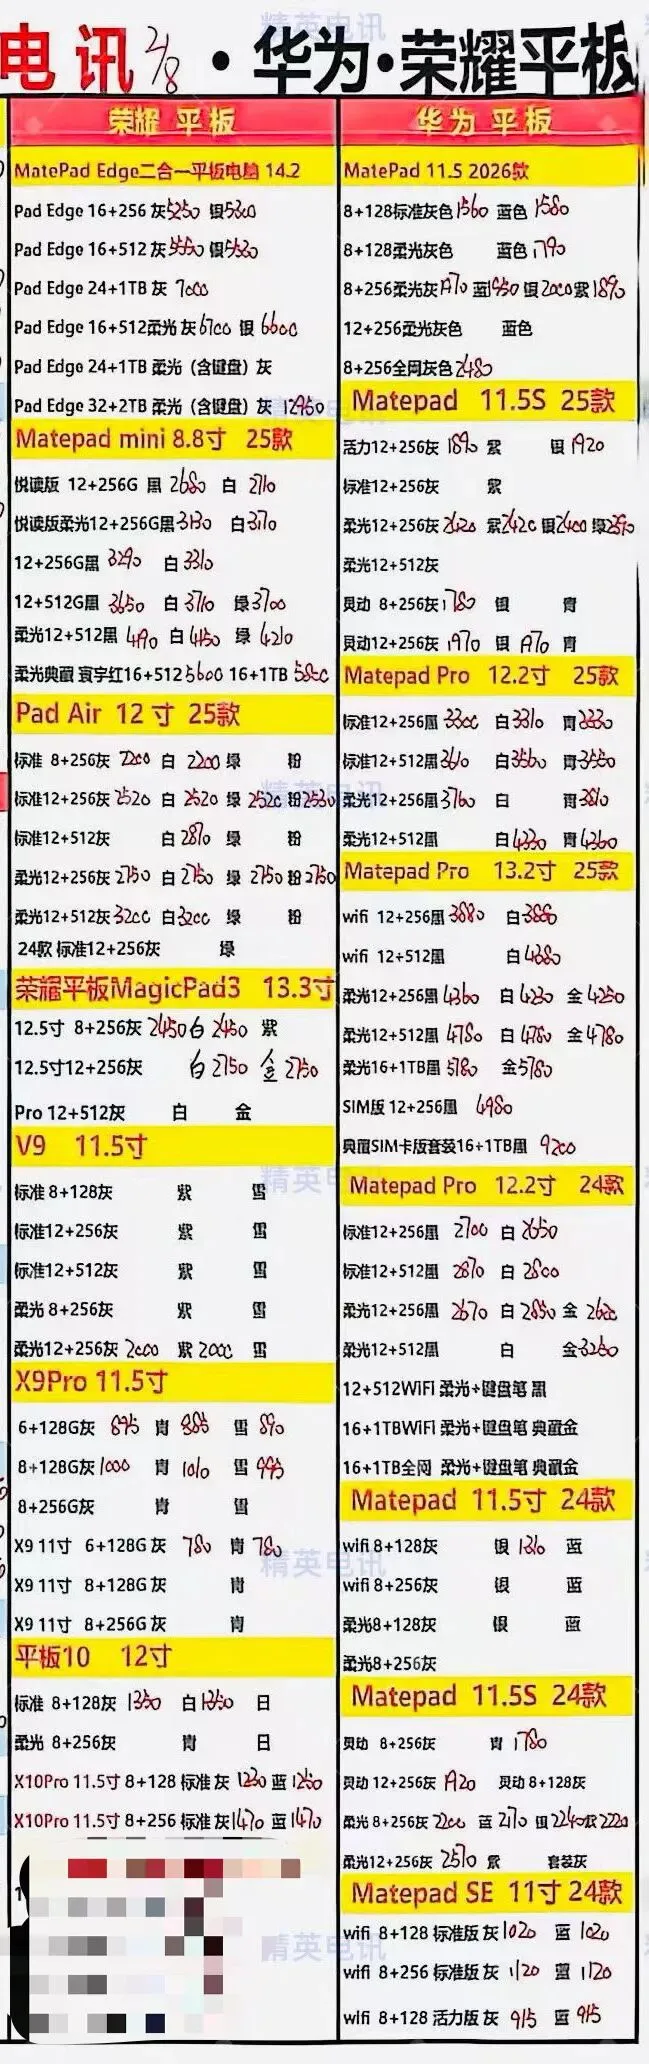 电讯 2/8 ·华为·荣耀平板
荣耀 平板
MatePad Edge二合一平板电脑 14.2
Pad Edge 16+256 灰5250 银5300
Pad Edge 16+512 灰5550 银5530
Pad Edge 24+1TB 灰 7000
Pad Edge 16+512柔光 灰6700 银 6600
Pad Edge 24+1TB 柔光（含键盘）灰
Pad Edge 32+2TB 柔光（含键盘）灰 12950
Matepad mini 8.8寸 25款
悦读版 12+256G 黑 2680 白 2710
悦读版柔光12+256G黑3130 白3170
12+256G黑 3290 白 3310
12+512G黑 3650 白 3710 绿3700
柔光12+512黑 4190 白4150 绿 4210
柔光典藏 寰宇红16+512 5600 16+1TB 5800
Pad Air 12寸 25款
标准 8+256灰 2200 白 2200 绿 粉
标准12+256灰 2520 白 2520 绿 2520 粉2530
标准12+512灰 白 2870 绿 粉
柔光12+256灰 2750 白 2750 绿 2750 粉2750
柔光12+512灰3200 白3200 绿 粉
24款 标准12+256灰 绿
荣耀平板MagicPad3 13.3寸
12.5寸 8+256灰 2450 白 2450 紫
12.5寸12+256灰 白 2750 金 2750
Pro 12+512灰 白 金
V9 11.5寸
标准 8+128灰 紫 雪
标准12+256灰 紫 雪
标准12+512灰 紫 雪
柔光 8+256灰 紫 雪
柔光12+256灰 2000 紫 2000 雪
X9Pro 11.5寸
6+128G灰 895 青 885 雪 890
8+128G灰 1000 青 1010 雪 995
8+256G灰 青 雪
X9 11寸 6+128G 灰 780 青 780
X9 11寸 8+128G灰 青
X9 11寸 8+256G 灰 青
平板10 12寸
标准 8+128灰 1350 白1350 日
柔光 8+256灰 青 日
X10Pro 11.5寸 8+128 标准 灰 1230 蓝 1250
X10Pro 11.5寸 8+256 标准 灰1470 蓝 1470
华为 平板
MatePad 11.5 2026款
8+128标准灰色1560 蓝色 1580
8+128柔光灰色 蓝色 1790
8+256柔光灰1970 蓝1950 银2000紫1890
12+256柔光灰色 蓝色
8+256全网灰色2480
Matepad 11.5S 25款
活力12+256灰 1890 紫 银 1920
标准12+256灰 紫
柔光12+256灰2420 紫2420 银2400 绿2390
柔光12+512灰
灵动 8+256灰1780 银 青
灵动12+256灰 1970 银 1970 青
Matepad Pro 12.2寸 25款
标准12+256黑 3300 白3310 青3330
标准12+512黑3610 白3560 青3550
柔光12+256黑3760 白 青3810
柔光12+512黑 白4330 青4360
Matepad Pro 13.2寸 25款
wifi 12+256黑 3880 白3880
wifi 12+512黑 白4380
柔光12+256黑 4360 白 4230 金 4250
柔光12+512黑 4780 白 4780 金 4780
柔光16+1TB黑 5780 金5780
SIM版 12+256黑 4980
典藏SIM卡版套装16+1TB黑 9200
Matepad Pro 12.2寸 24款
标准12+256黑 2700 白 2650
标准12+512黑 2870 白 2800
柔光12+256黑 2670 白 2850 金 2620
柔光12+512黑 白 金3260
12+512WIFI 柔光+键盘笔 黑
16+1TBWiFi 柔光+键盘笔 典藏金
16+1TB全网 柔光+键盘笔 典藏金
Matepad 11.5寸 24款
wifi 8+128灰 银 1310 蓝
wifi 8+256灰 银 蓝
柔光8+128灰 银 蓝
柔光8+256灰
Matepad 11.5S 24款
灵动 8+256灰 青 1780
灵动 12+256灰 1920 灵动 8+128灰
柔光 8+256灰 2200 蓝 2170 银 2240紫 2220
柔光12+256灰 2570 紫 套装灰
Matepad SE 11寸 24款
wifi 8+128 标准版 灰1020 蓝 1020
wifi 8+256 标准版 灰 1120 蓝 1120
wifi 8+128 活力版 灰 915 蓝 915
精英电讯